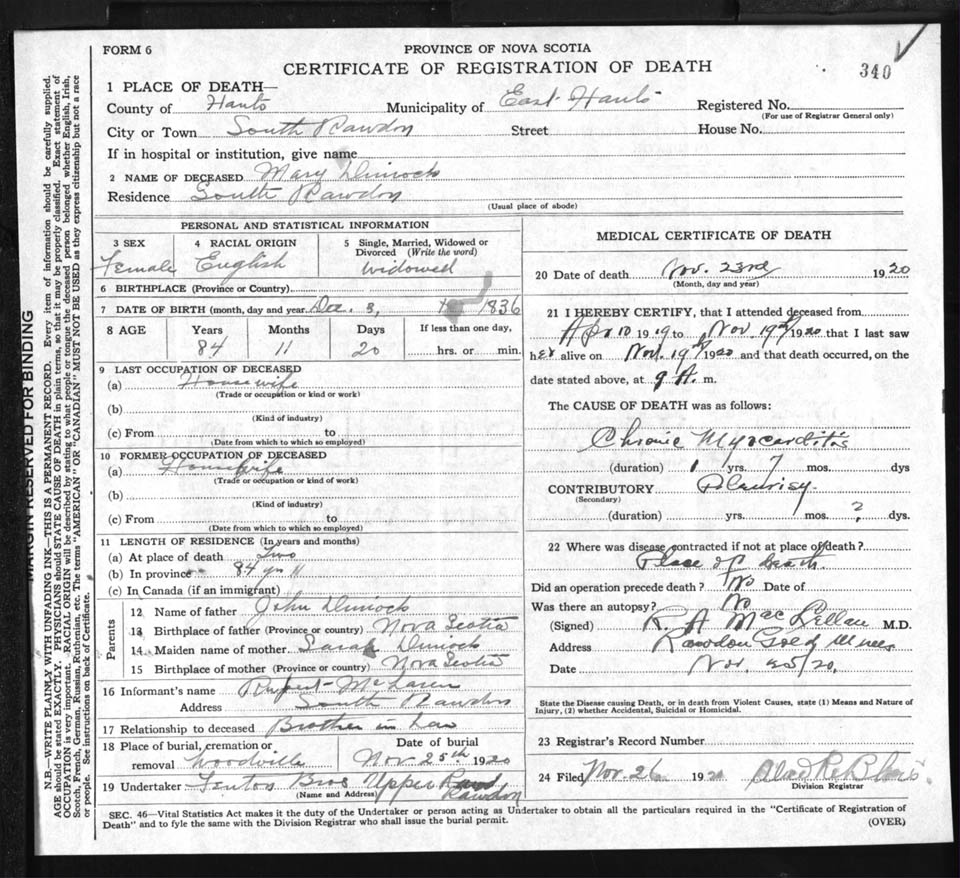 FORM 6
PROVINCE OF NOVA SCOTIA
CERTIFICATE OF REGISTRATION OF DEATH
340
1 PLACE OF DEATH—
County of Hants Municipality of East Hants Registered No.
(For use of Registrar General only)
City or Town South Rawdon Street House No.
If in hospital or institution, give name
2 NAME OF DECEASED Mary Dimock
Residence South Rawdon
(Usual place of abode)
PERSONAL AND STATISTICAL INFORMATION
3 SEX 4 RACIAL ORIGIN 5 Single, Married, Widowed or
Divorced (Write the word)
Female English Widowed
6 BIRTHPLACE (Province or Country)
7 DATE OF BIRTH (month, day and year Dec. 3, 1836
8 AGE Years Months Days If less than one day,
84 11 20 hrs. or min.
9 LAST OCCUPATION OF DECEASED
(a) Housewife
(Trade or occupation or kind or work)
(b)
(Kind of industry)
(c) From to
(Date from which to which so employed)
10 FORMER OCCUPATION OF DECEASED
(a) Housewife
(Trade or occupation or kind of work)
(b)
(Kind of industry)
(c) From to
(Date from which to which so employed)
11 LENGTH OF RESIDENCE (In years and months)
(a) At place of death Two
(b) In province 84 yrs 11
(c) In Canada (if an immigrant)
Parents
12 Name of father John Dimock
13 Birthplace of father (Province or country) Nova Scotia
14 Maiden name of mother Sarah Dimock
15 Birthplace of mother (Province or country) Nova Scotia
16 Informant's name Rupert McLaren
Address South Rawdon
17 Relationship to deceased Brother in Law
18 Place of burial, cremation or Date of burial
removal Woodville Nov 25th 1920
19 Undertaker Fenton Bros Upper Rawdon
(Name and Address)
MEDICAL CERTIFICATE OF DEATH
20 Date of death Nov. 23rd 1920
(Month, day and year)
21 I HEREBY CERTIFY, that I attended deceased from
Apr 10 1919 to Nov 19th 1920 that I last saw
her alive on Nov. 19th 1920 and that death occurred, on the
date stated above, at 9 A. m.
The CAUSE OF DEATH was as follows:
Chronic Myocarditis
(duration) 1 yrs. 7 mos. dys
CONTRIBUTORY Pleurisy
(Secondary)
(duration) yrs. mos. 2 dys.
22 Where was disease contracted if not at place of death?
Place of Death
Did an operation precede death? No Date of
Was there an autopsy? No
(Signed) R. A MacLellan M.D.
Address Rawdon Gold Mines
Date Nov 25/20
State the Disease causing Death, or in death from Violent Causes, state (1) Means and Nature of
Injury, (2) whether Accidental, Suicidal or Homicidal.
23 Registrar's Record Number
24 Filed Nov. 26 1920
Division Registrar
SEC. 46—Vital Statistics Act makes it the duty of the Undertaker or person acting as Undertaker to obtain all the particulars required in the "Certificate of Registration of
Death" and to fyle the same with the Division Registrar who shall issue the burial permit.
(OVER)
MARGIN RESERVED FOR BINDING
N.B.—WRITE PLAINLY WITH UNFADING INK—THIS IS A PERMANENT RECORD. Every item of information should be carefully supplied.
AGE should be stated EXACTLY. PHYSICIANS should STATE CAUSE OF DEATH in plain terms, so that it may be properly classified. Exact statement of
OCCUPATION is very important. RACIAL ORIGIN will be described by stating to what people or tongue the deceased person belonged whether English, Irish,
Scotch, French, German, Russian, Ruthenian, etc. The terms "AMERICAN" OR "CANADIAN" MUST NOT BE USED as they express citizenship but not a race
or people. See instructions on back of Certificate.